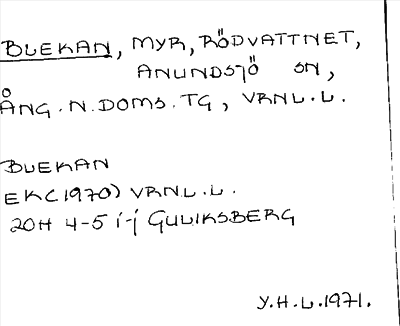 BLEKAN, MYR, RÖDVATTNET,
ANUNDSJÖ SN,
ÅNG. N. DOMS. TG, VRNL.L.
BLEKAN
EK(1970) VRNL.L.
20H 4-5 i-j GULIKSBERG
Y.H.L.1971.